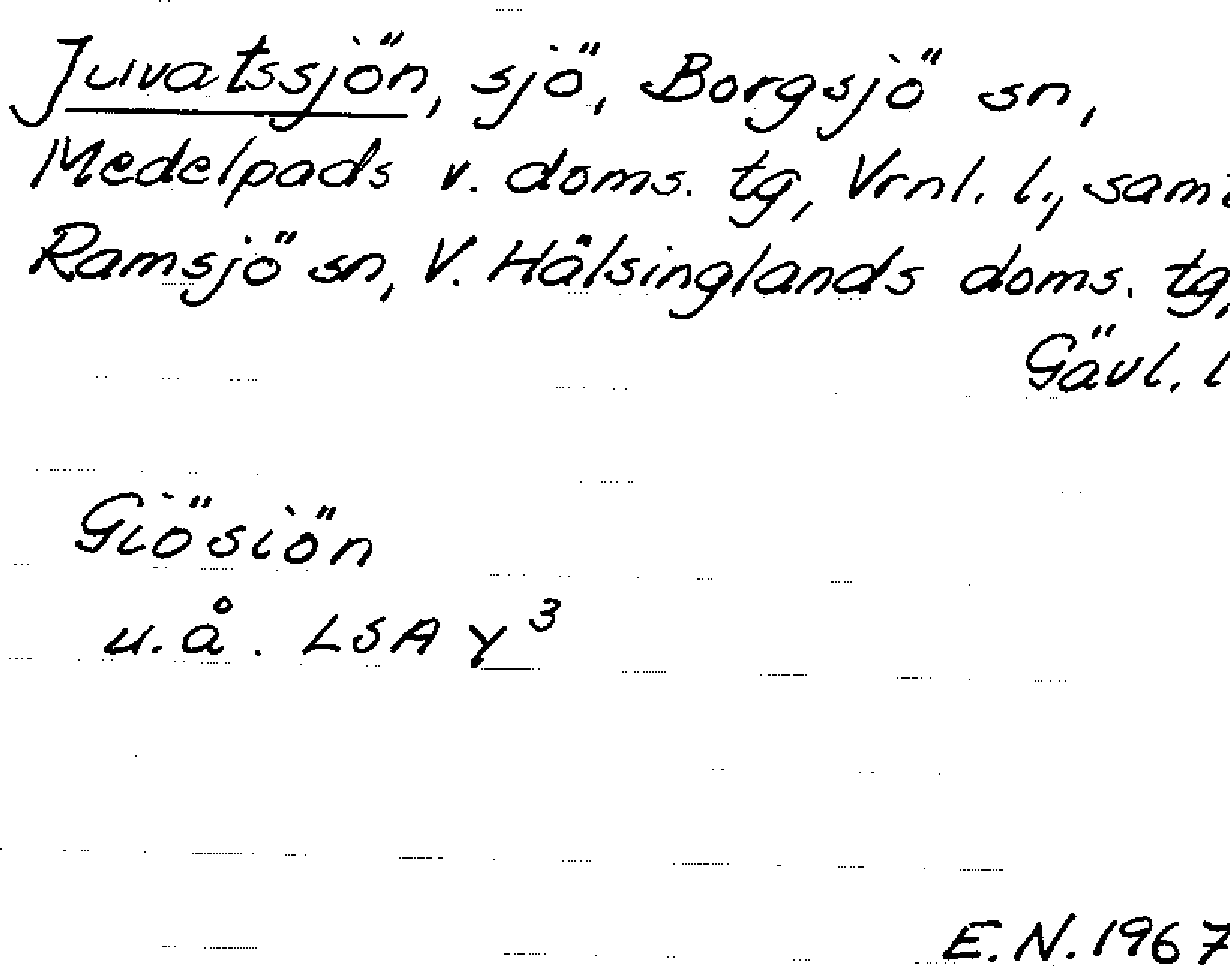 Juvatssjön, sjö, Borgsjö sn,
Medelpads v. doms. tg, Vrnl. l., samt
Ramsjö sn, V. Hälsinglands doms. tg,
Gävl. l
Giösiön
u.å. LSA Y3
E.N. 1967